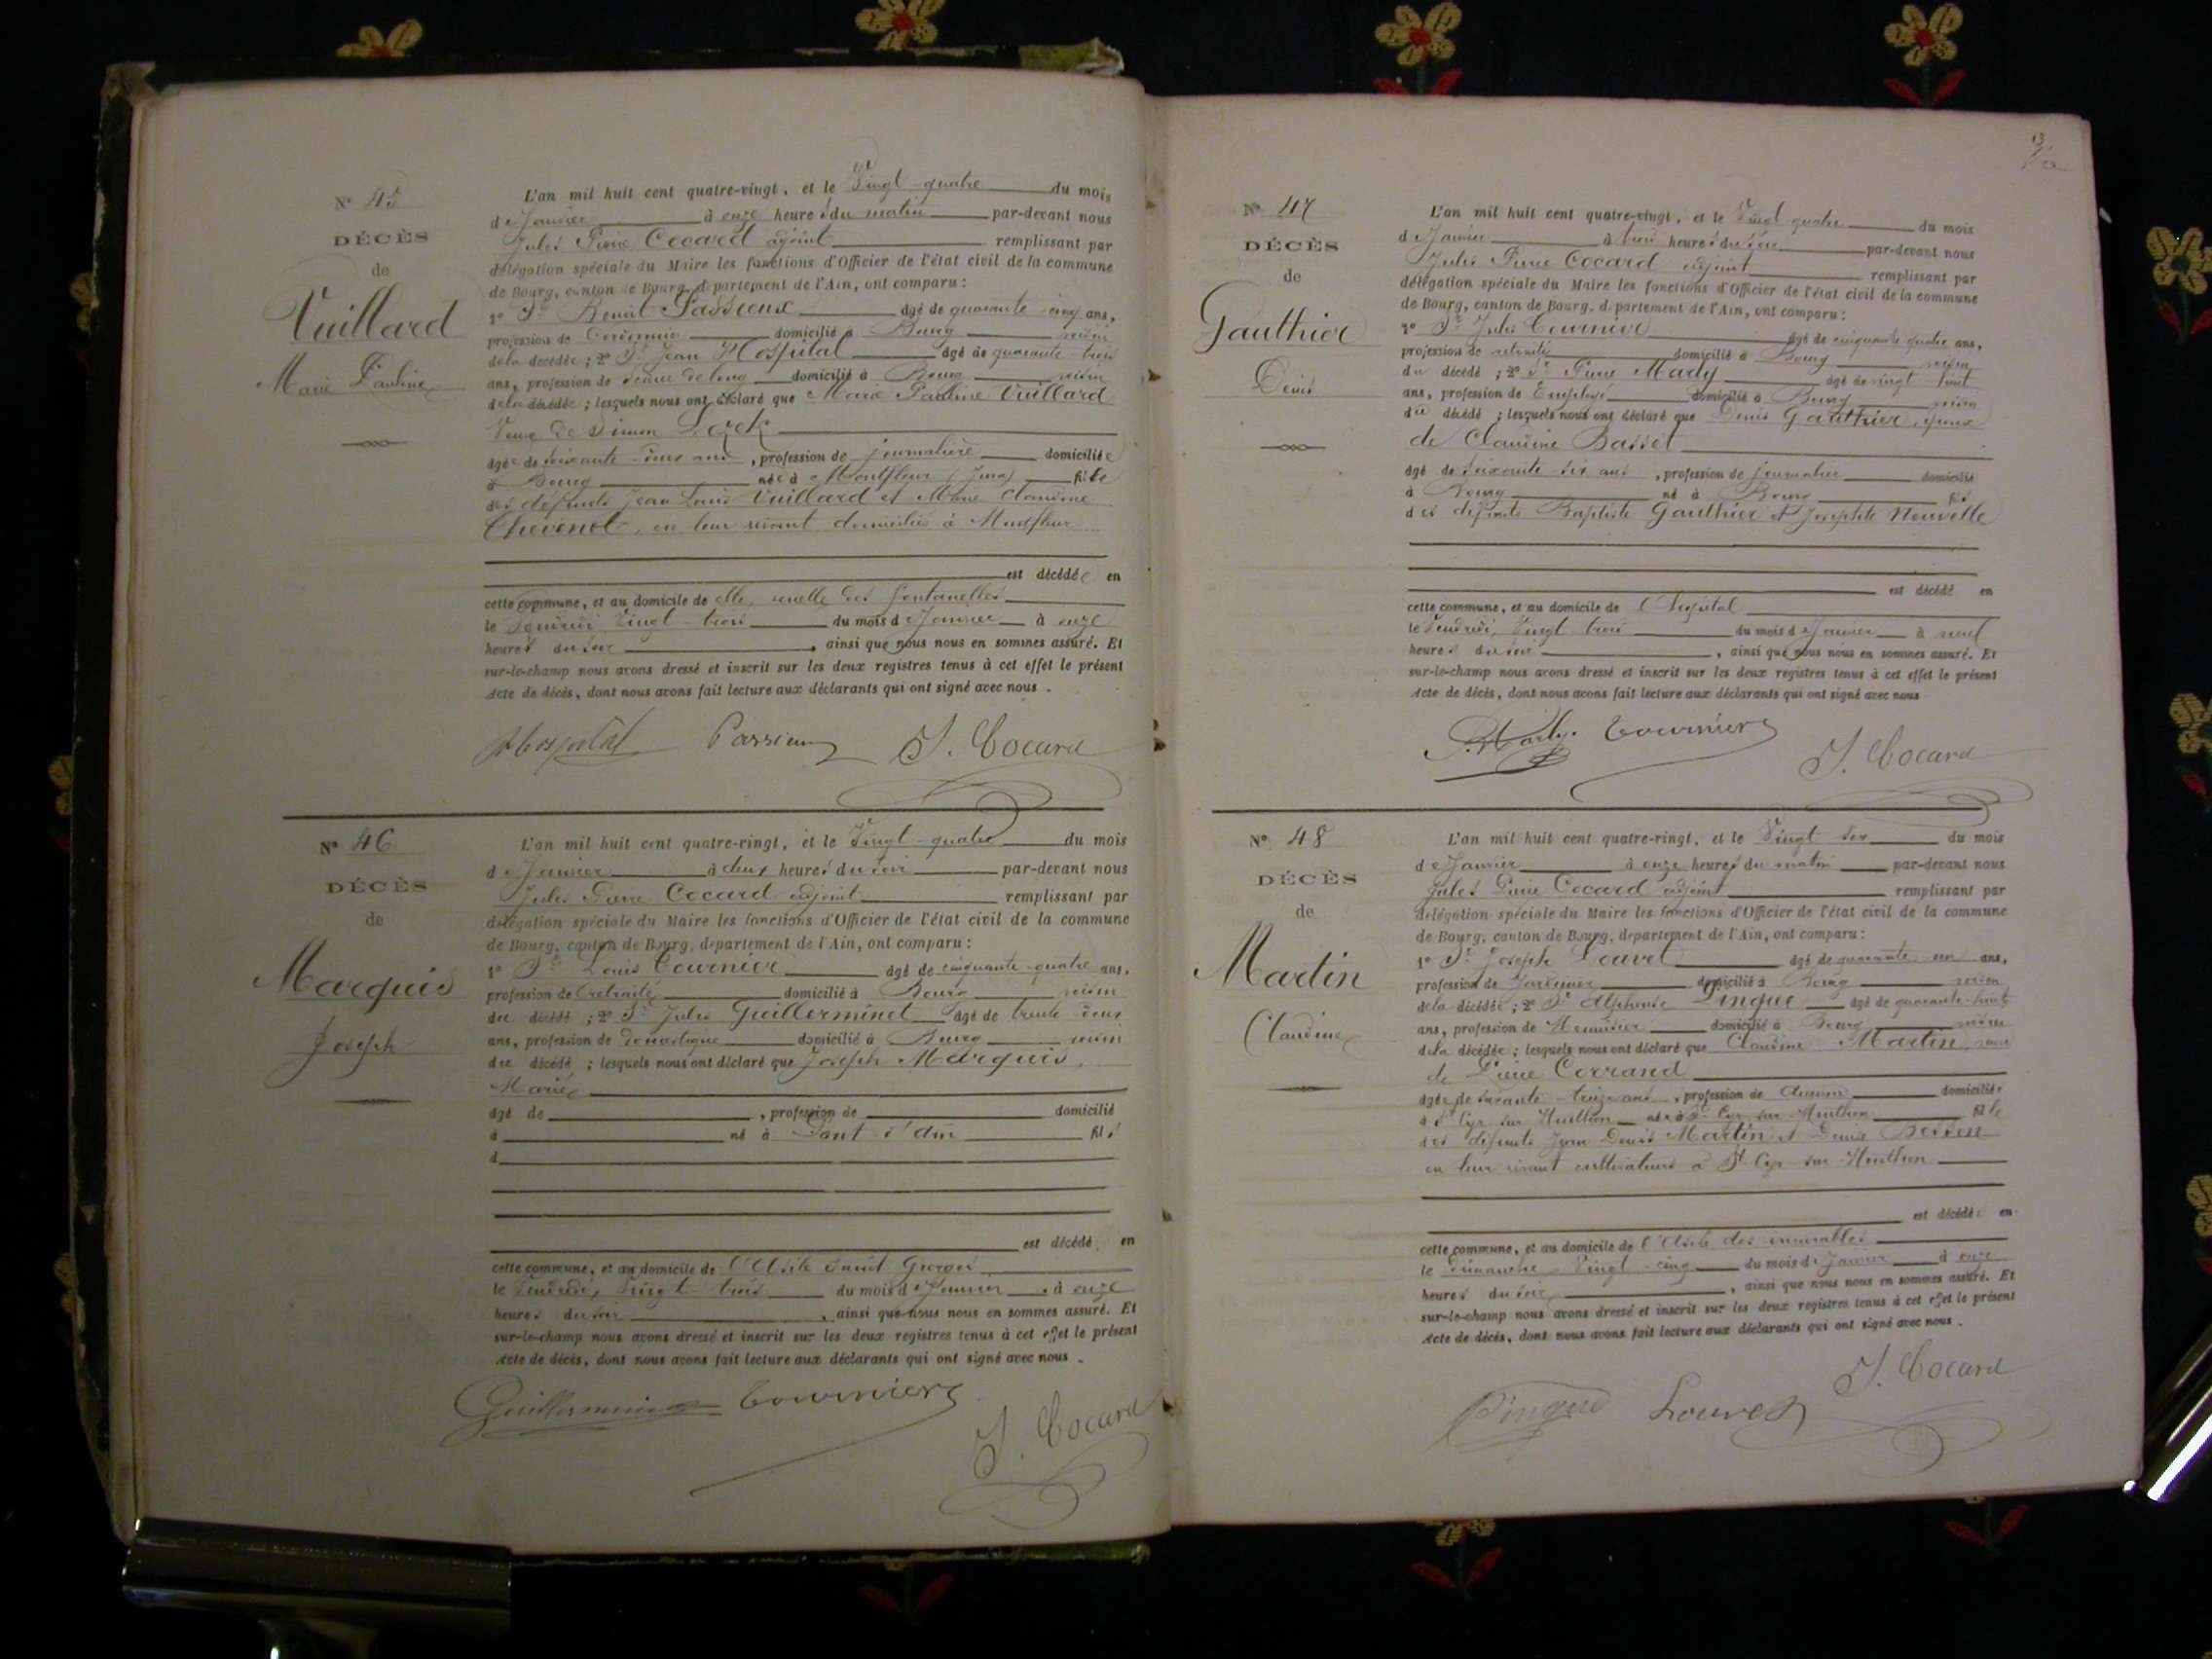 N° 45
DÉCÈS
de
Vuillard
Marie Pauline
L'an mil huit cent quatre-vingt, et le Vingt-quatre du mois
de Janvier à onze heures du matin par-devant nous
Jules Pierre Cocard adjoint remplissant par
délégation spéciale du Maire les fonctions d'Officier de l'état civil de la commune
de Bourg, canton de Bourg, département de l'Ain, ont comparu :
1° Sr Benoit Passieux âgé de quarante-cinq ans,
profession de Cordonnier domicilié à Bourg voisin
de la décédée ; 2° Sr Jean Hospital âgé de quarante-trois
ans, profession de domicilié à Bourg voisin
de la décédée ; lesquels nous ont déclaré que Marie Pauline Vuillard
Veuve de Simon
âgée de soixante-deux ans, profession de journalière domiciliée
à Bourg née à Montfleur (Jura) fille
des défunts Jean Louis Vuillard et Marie Claudine
Chevenot, en leur vivant domiciliés à Montfleur
est décédée en
cette commune, et au domicile de elle, ruelle des fontanelles
le Vendredi Vingt-trois du mois de Janvier à onze
heures du soir, ainsi que nous nous en sommes assuré. Et
sur-le-champ nous avons dressé et inscrit sur les deux registres tenus à cet effet le présent
Acte de décès, dont nous avons fait lecture aux déclarants qui ont signé avec nous.
Hospital Passieux J. Cocard
N° 46
DÉCÈS
de
Marquis
Joseph
L'an mil huit cent quatre-vingt, et le Vingt-quatre du mois
de Janvier à deux heures du soir par-devant nous
Jules Pierre Cocard adjoint remplissant par
délégation spéciale du Maire les fonctions d'Officier de l'état civil de la commune
de Bourg, canton de Bourg, département de l'Ain, ont comparu :
1° Sr Louis Tournier âgé de cinquante-quatre ans,
profession de retraité domicilié à Bourg voisin
du décédé ; 2° Sr Jules Guillerminet âgé de trente deux
ans, profession de domestique domicilié à Bourg voisin
du décédé ; lesquels nous ont déclaré que Joseph Marquis,
Marié
âgé de , profession de domicilié
à né à Pont d'Ain fils
d
est décédé en
cette commune, et au domicile de l'Asile Saint Georges
le Vendredi, Vingt-trois du mois de Janvier à onze
heures du soir, ainsi que nous nous en sommes assuré. Et
sur-le-champ nous avons dressé et inscrit sur les deux registres tenus à cet effet le présent
Acte de décès, dont nous avons fait lecture aux déclarants qui ont signé avec nous.
Guillerminet Tournier J. Cocard
13
N° 47
DÉCÈS
de
Gauthier
Denis
L'an mil huit cent quatre-vingt, et le Vingt-quatre du mois
de Janvier à trois heures du soir par-devant nous
Jules Pierre Cocard adjoint remplissant par
délégation spéciale du Maire les fonctions d'Officier de l'état civil de la commune
de Bourg, canton de Bourg, département de l'Ain, ont comparu :
1° Sr Jules Tournier âgé de cinquante quatre ans,
profession de retraité domicilié à Bourg voisin
du décédé ; 2° Sr Pierre Marly âgé de vingt-huit
ans, profession de Employé domicilié à Bourg voisin
du décédé ; lesquels nous ont déclaré que Denis Gauthier, époux
de Claudine Basset
âgé de soixante six ans, profession de journalier domicilié
à Bourg né à Bourg fils
des défunts Baptiste Gauthier et Josephte Nouvelle
est décédé en
cette commune, et au domicile de l'hôpital
le Vendredi, Vingt-trois du mois de Janvier à neuf
heures du soir, ainsi que nous nous en sommes assuré. Et
sur-le-champ nous avons dressé et inscrit sur les deux registres tenus à cet effet le présent
Acte de décès, dont nous avons fait lecture aux déclarants qui ont signé avec nous.
P. Marly. Tournier J. Cocard
N° 48
DÉCÈS
de
Martin
Claudine
L'an mil huit cent quatre-vingt, et le Vingt six du mois
de Janvier à onze heures du matin par-devant nous
Jules Pierre Cocard adjoint remplissant par
délégation spéciale du Maire les fonctions d'Officier de l'état civil de la commune
de Bourg, canton de Bourg, département de l'Ain, ont comparu :
1° Sr Joseph Louvet âgé de quarante-un ans,
profession de Jardinier domicilié à Bourg voisin
de la décédée ; 2° Sr Alphonse Pingue âgé de quarante-huit
ans, profession de Menuisier domicilié à Bourg voisin
de la décédée ; lesquels nous ont déclaré que Claudine Martin, veuve
de Pierre Corrand
âgée de soixante-treize ans, profession de aucune domiciliée
à St Cyr sur Menthon née à St Cyr sur Menthon fille
des défunts Jean Denis Martin et Denise Besson
en leur vivant cultivateurs à St Cyr sur Menthon
est décédée en
cette commune, et au domicile de l'Asile des incurables
le Dimanche Vingt-cinq du mois de Janvier à onze
heures du soir, ainsi que nous nous en sommes assuré. Et
sur-le-champ nous avons dressé et inscrit sur les deux registres tenus à cet effet le présent
Acte de décès, dont nous avons fait lecture aux déclarants qui ont signé avec nous.
Pingue Louvet J. Cocard